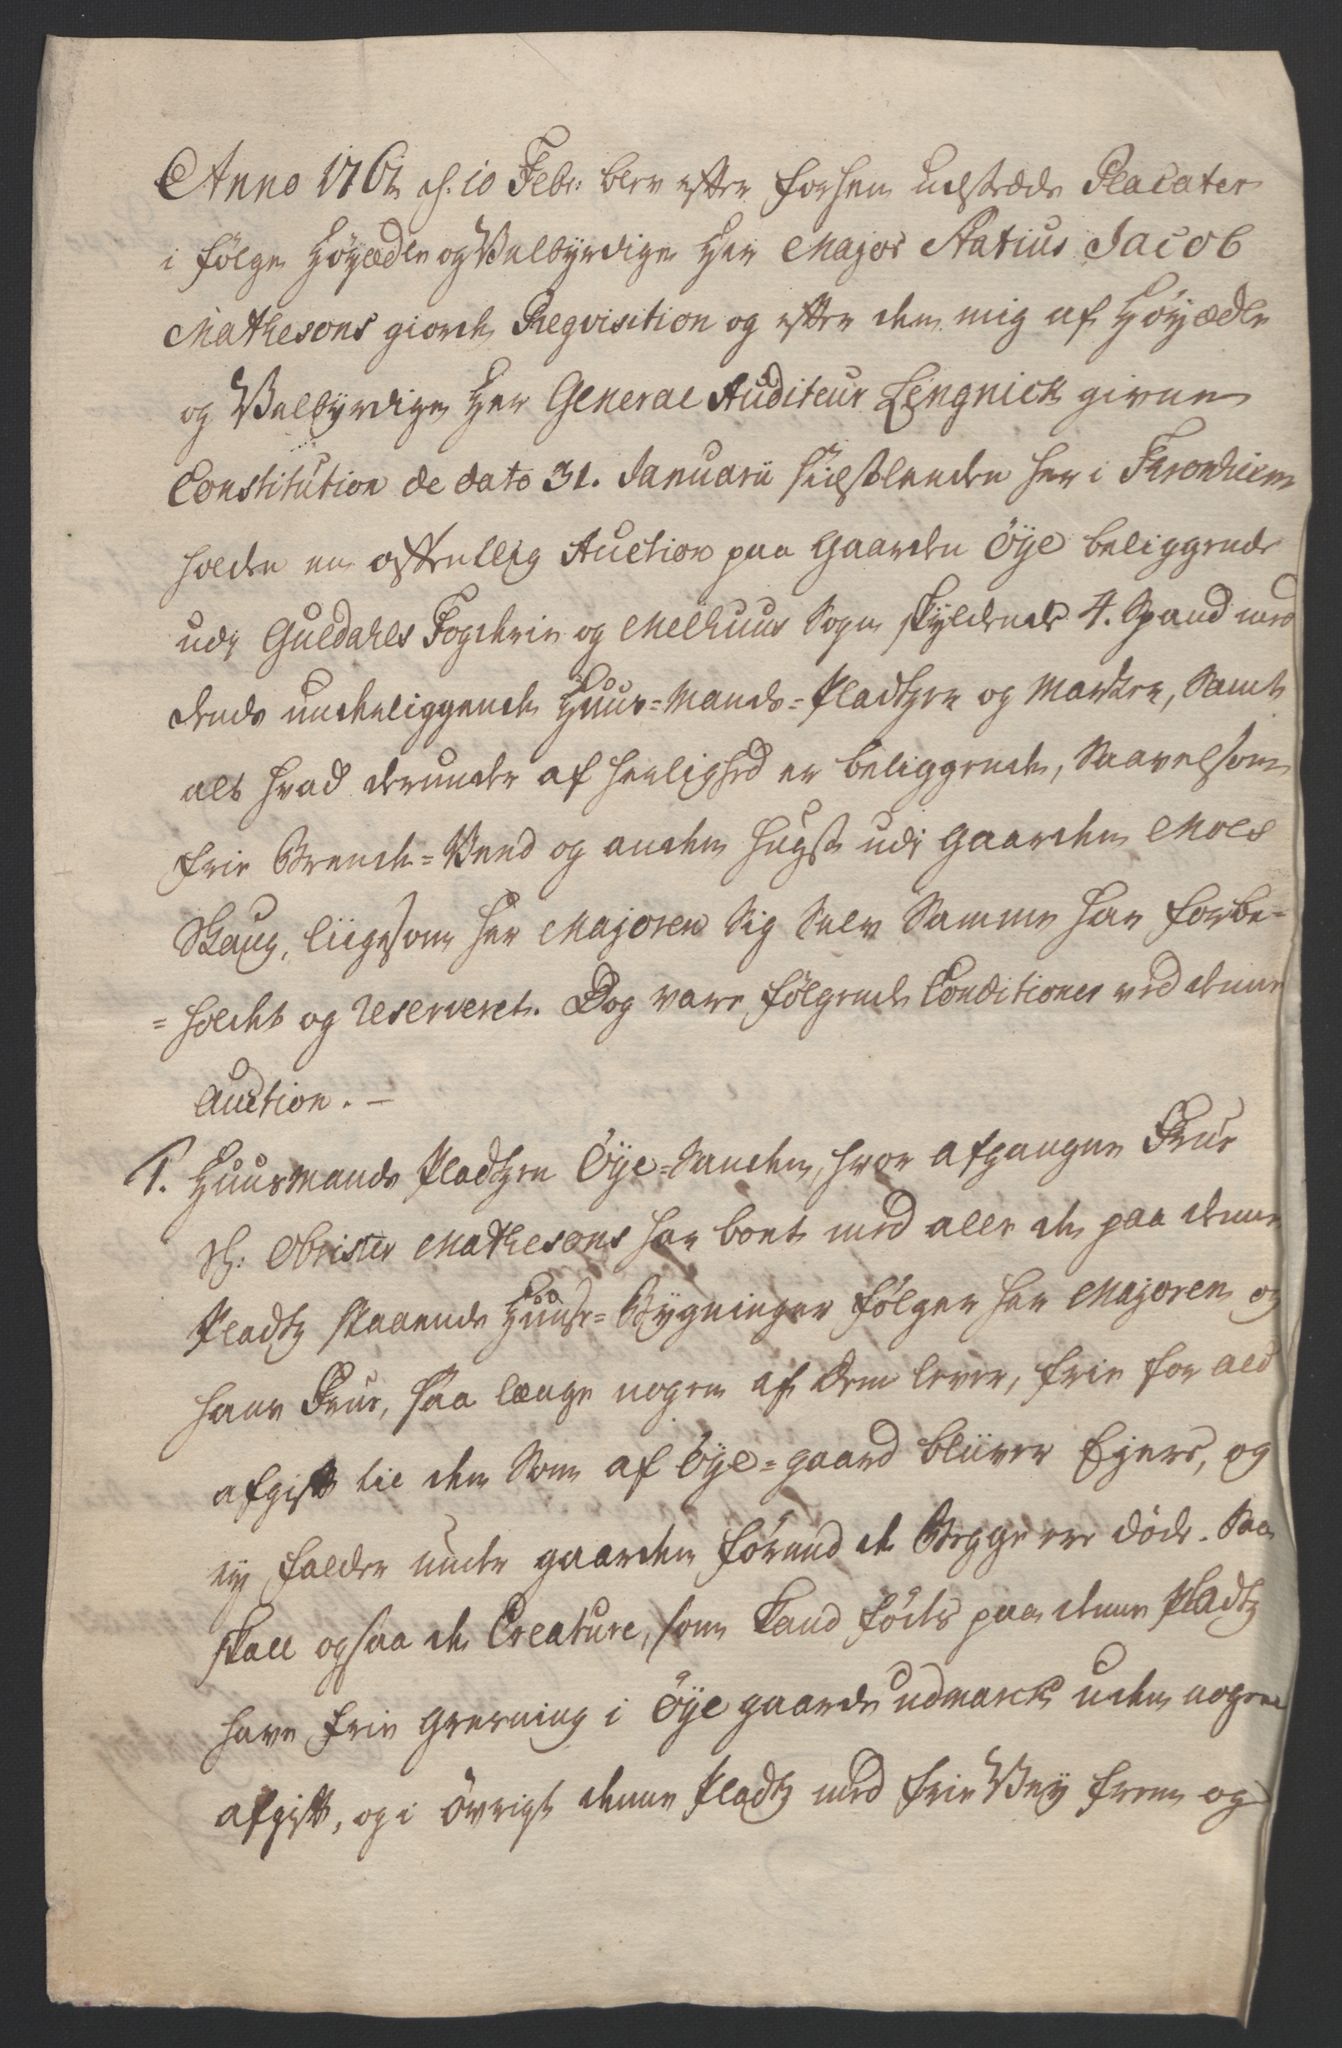 Anno 1762 d. 10 Febr: blev efter forhen udstædde Placater
i følge Høyædle og Velbyrdige Her Major Statius Jacob
Mathesons giorde Reqvisition og efter den mig af Høyædle
og Velbyrdige Her General Auditeur Lengnick givne
Constitution de dato 31. Januarii sidstleeden her i Tronhiem
holden en offentlig Auction paa Gaarden Öye beliggende
udi Guldahls Fogderie og Melhuus Sogn skyldende 4. Spand med
dends underliggende Huus=Mands=Pladtzer og Marker, Samt
alt hvad derunder af herlighed er beliggende, Saavelsom
frie Brende=Veed og anden hugst udi Gaarden Moes
Skaug, liigesom Her Majoren Sig Selv Samme har forbe=
=holdet og reserveret. Dog vare følgende Conditioner ved denne
Auction. —
1. Huusmands Pladtzen Öye=Sanden, hvor afgangne Frue
Sl: Obrister Mathesons har boet med alle de paa denne
Pladtz staaende Huuse=Bygninger følger Her Majoren og
hans Frue, saa længe nogen af Dem lever, frie for ald
afgift til den Som af Öye=gaard bliiver Ejere, og
ey falder under gaarden førend de Begge ere døde. Saa
skall ogsaa de Creature, som kand födes paa denne Pladtz
have frie Gresning i Öye gaards udmarck uden nogen
afgift, og i övrigt denne Pladtz med frie Vey frem og